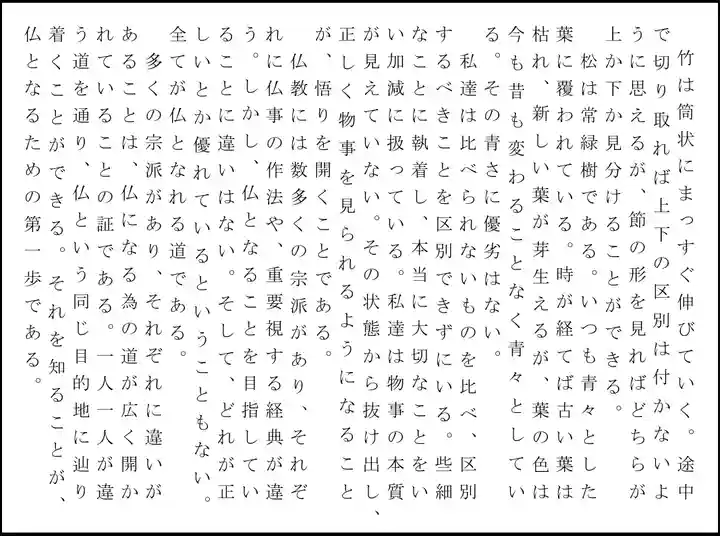 竹は筒状にまっすぐ伸びていく。途中
で切り取れば上下の区別は付かないよ
うに思えるが、節の形を見ればどちらが
上か下か見分けることができる。
　松は常緑樹である。いつも青々とした
葉に覆われている。時が経てば古い葉は
枯れ、新しい葉が芽生えるが、葉の色は
今も昔も変わることなく青々としてい
る。その青さに優劣はない。
　私達は比べられないものを比べ、区別
するべきことを区別できずにいる。些細
なことに執着し、本当に大切なことをい
い加減に扱っている。私達は物事の本質
が見えていない。その状態から抜け出し、
正しく物事を見られるようになること
が、悟りを開くことである。
　仏教には数多くの宗派があり、それぞ
れに仏事の作法や、重要視する経典が違
う。しかし、仏となることを目指してい
ることに違いはない。そして、どれが正
しいとか優れているということもない。
全てが仏となれる道である。
　多くの宗派があり、それぞれに違いが
あることは、仏になる為の道が広く開か
れていることの証である。一人一人が違
う道を通り、仏という同じ目的地に辿り
着くことができる。それを知ることが、
仏となるための第一歩である。